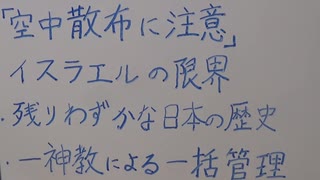 「空中散布に注意」
イスラエルの限界
・残りわずかな日本の歴史
・一神教による一括管理